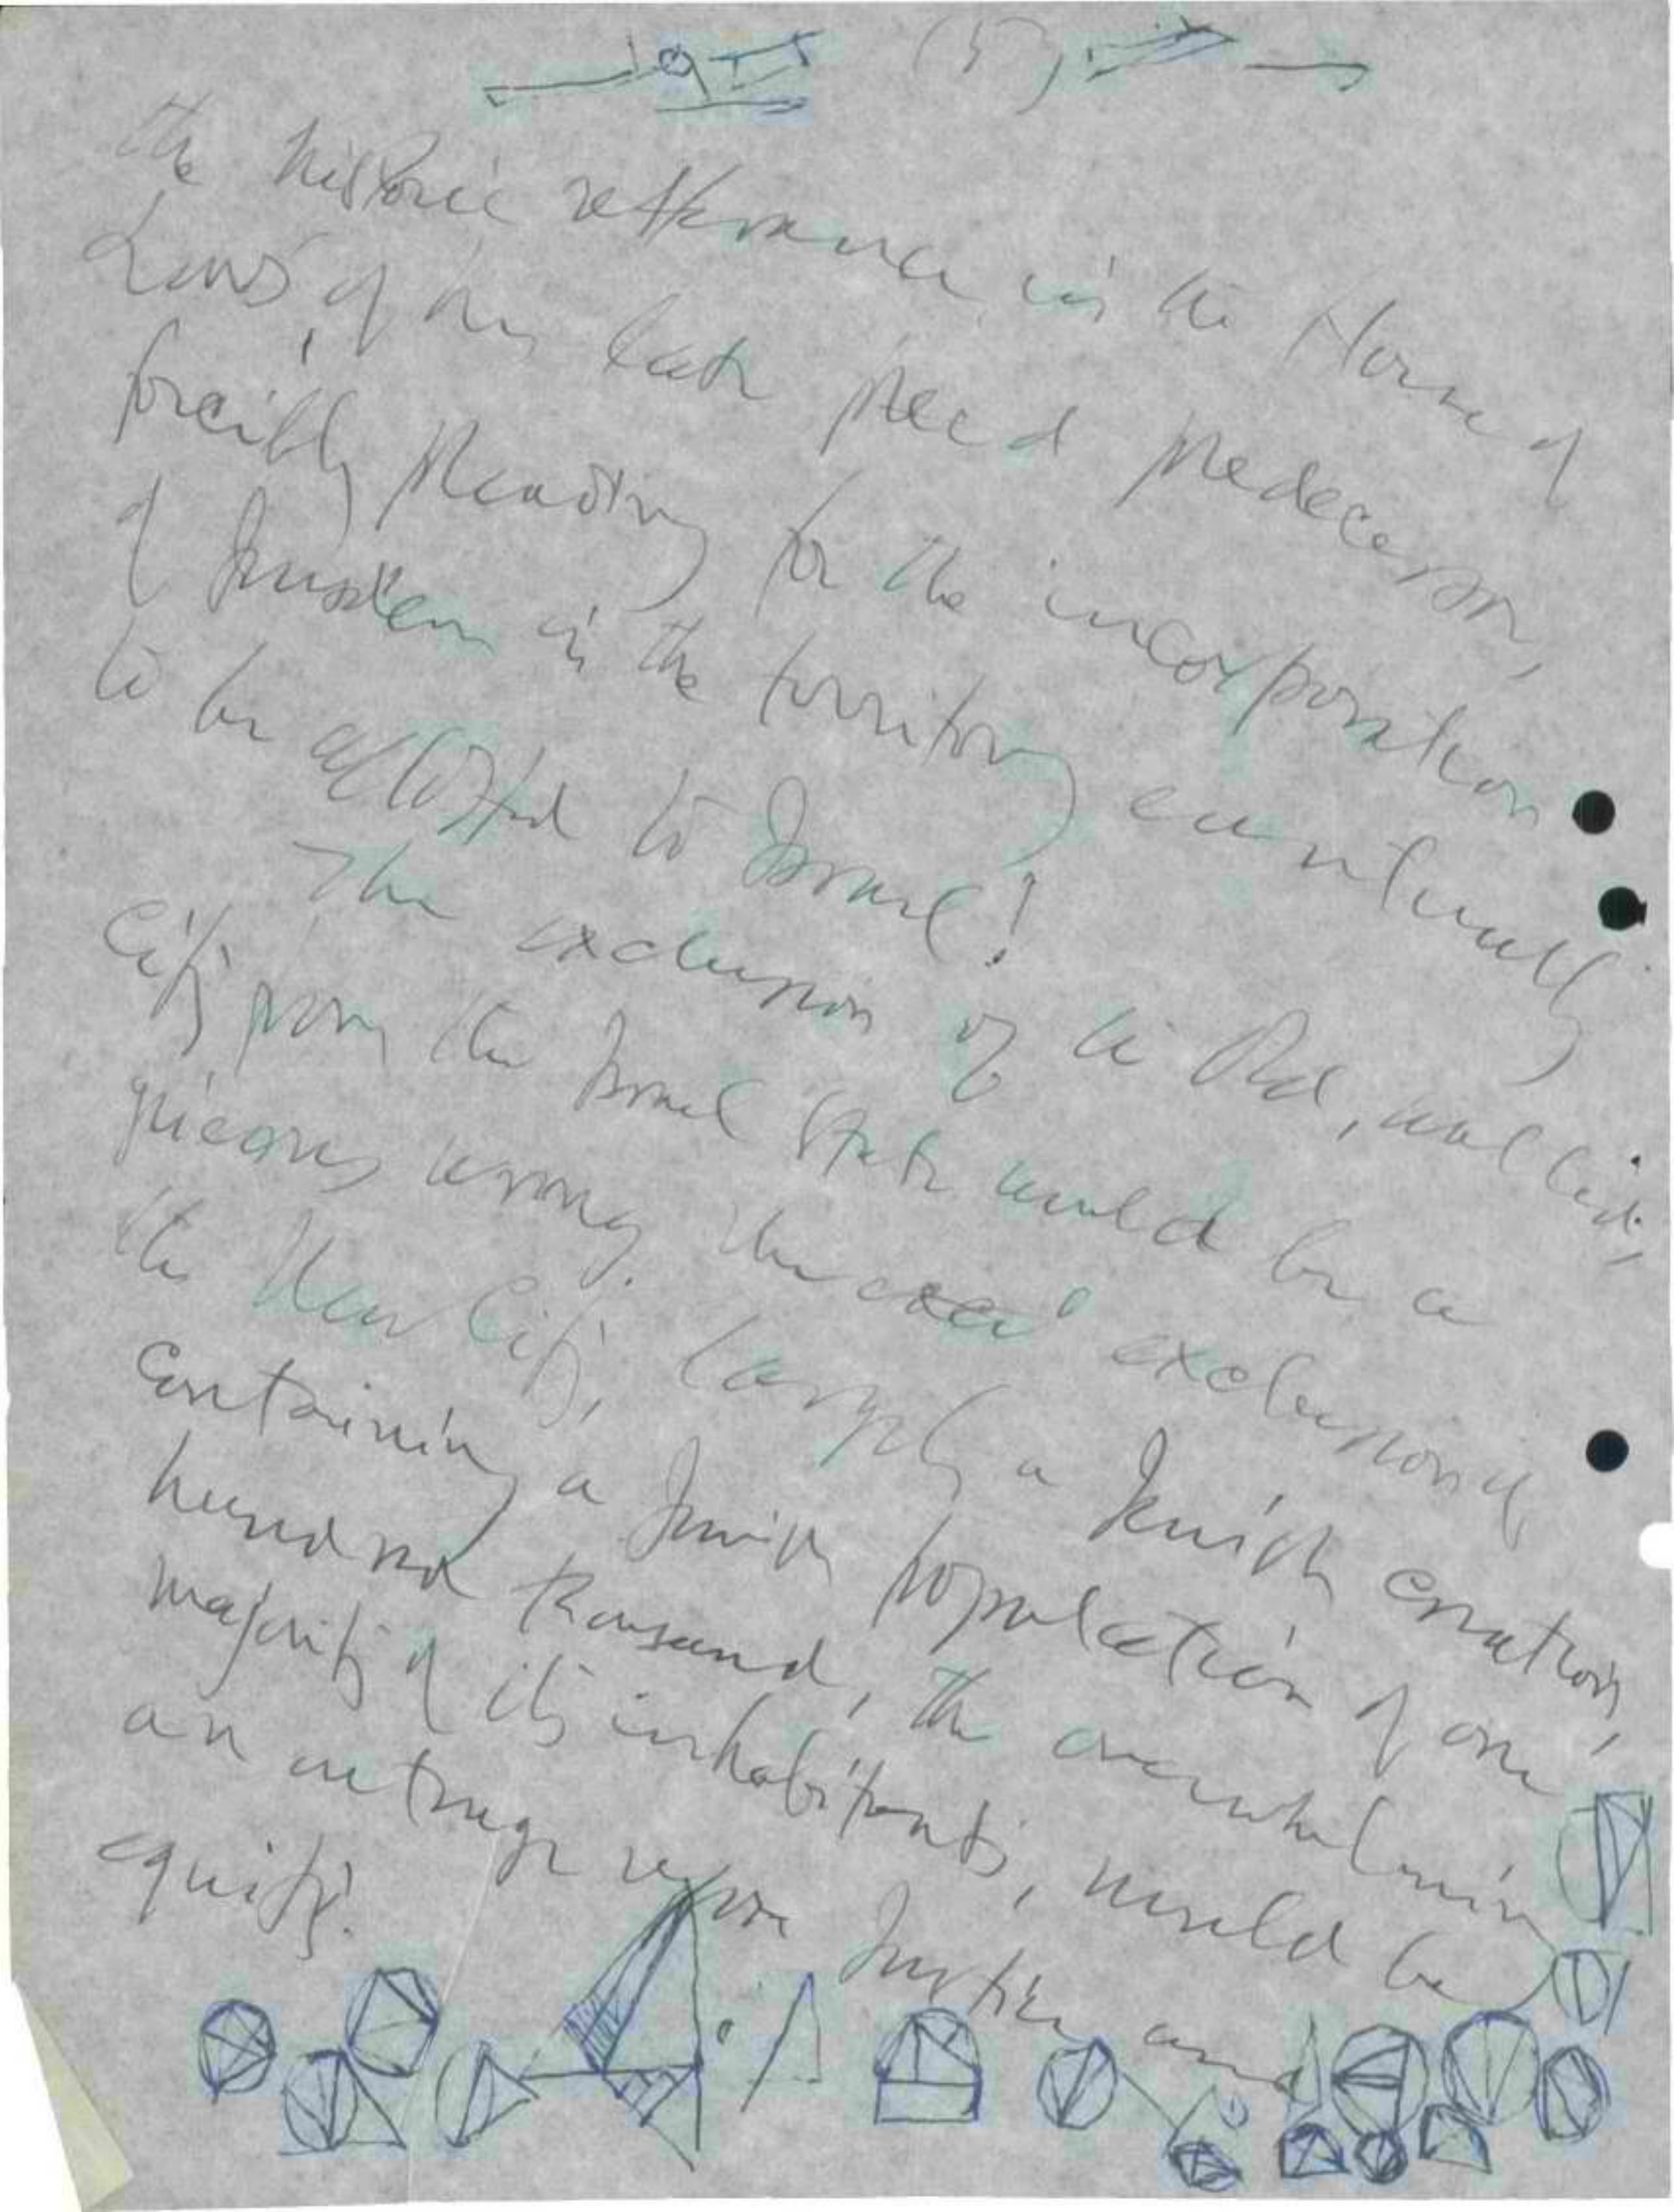 (5)
the historic utterance in the House of
Lords, of his late predecessor,
forcibly pleading for the incorporation
of Jerusalem in the territory eventually
to be allotted to Israel!
The exclusion of the Old, walled,
City from the Israel State would be a
grievous wrong. The exclusion of
the New City, largely a Jewish creation,
containing a Jewish population of one
hundred thousand, the overwhelming
majority of its inhabitants, would be
an outrage upon Justice and
equity.